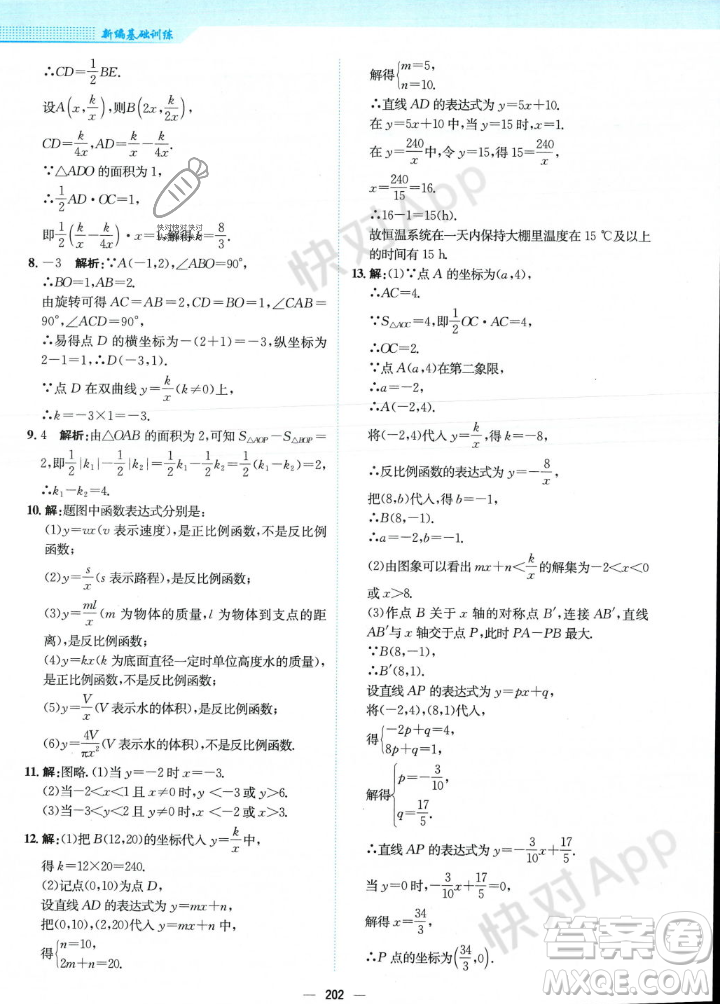 新编基础训练
∴CD=1/2BE.
设A(x,k/x),则B(2x,k/2x),
CD=k/4x,AD=k/x-k/4x.
∵△ADO的面积为1,
∴1/2AD·OC=1,
即1/2(k/x-k/4x)·x=1,解得k=8/3.
8. -3 解析:∵A(-1,2),∠ABO=90°,
∴BO=1,AB=2.
由旋转可得AC=AB=2,CD=BO=1,∠CAB=90°,∠ACD=90°,
∴易得点D的横坐标为-(2+1)=-3,纵坐标为
2-1=1,
∵点D在双曲线y=k/x(k≠0)上,
∴k=-3×1=-3.
9. 4 解析:由△OAB的面积为2,可知S△AOP-S△BOP=
2,即1/2|k₁|-1/2|k₂|=1/2k₁-1/2k₂=2,
∴k₁-k₂=4.
10. 解:题图中函数表达式分别是:
(1)y=vx(v表示速度),是正比例函数,不是反比例
函数;
(2)y=s/x(s表示路程),是反比例函数;
(3)y=ml/x(m为物体的质量,l为物体到支点的距
离),是反比例函数;
(4)y=kx(k为底面直径一定时单位高度水的体积),
是正比例函数,不是反比例函数;
(5)y=V/x(V表示水的体积),是反比例函数;
(6)y=4V/πx²(V表示水的体积),不是反比例函数.
11. 解:图略.(1)当y=-2时x=-3.
(2)当-2<x<1且x≠0时,y<-3或y>6.
(3)当-3<y<2且y≠0时,x<-2或x>3.
12. 解:(1)把B(12,20)的坐标代入y=k/x中,
得k=12×20=240.
(2)记点(0,10)为点D,
设直线AD的表达式为y=mx+n,
把(0,10),(2,20)代入y=mx+n中,
得{n=10,
2m+n=20.
解得{m=5,
n=10.
∴直线AD的表达式为y=5x+10.
在y=5x+10中,当y=15时,x=1.
在y=240/x中,令y=15,得15=240/x,
x=240/15=16.
∴16-1=15(h).
故恒温系统在一天内保持大棚里温度在15 ℃及以上
的时间有15 h.
13. 解:(1)∵点A的坐标为(a,4),
∴AC=4.
∵S△AOC=4,即1/2OC·AC=4,
∴OC=2.
∵点A(a,4)在第二象限,
∴a=-2,
∴A(-2,4).
将(-2,4)代入y=k/x,得k=-8,
∴反比例函数的表达式为y=-8/x.
把(8,b)代入,得b=-1,
∴B(8,-1).
(2)由图象可以看出mx+n<k/x的解集为-2<x<0
或x>8.
(3)作点B关于x轴的对称点B′,连接AB′,直线
AB′与x轴交于点P,此时PA-PB最大.
∵B(8,-1),
∴B′(8,1).
设直线AP的表达式为y=px+q,
将(-2,4),(8,1)代入,
得{-2p+q=4,
8p+q=1.
解得{p=-3/10,
q=17/5.
∴直线AP的表达式为y=-3/10x+17/5.
当y=0时,-3/10x+17/5=0,
解得x=34/3,
∴P点的坐标为(34/3,0).
202
快对App
快对App
答案圈
MXQE.COM